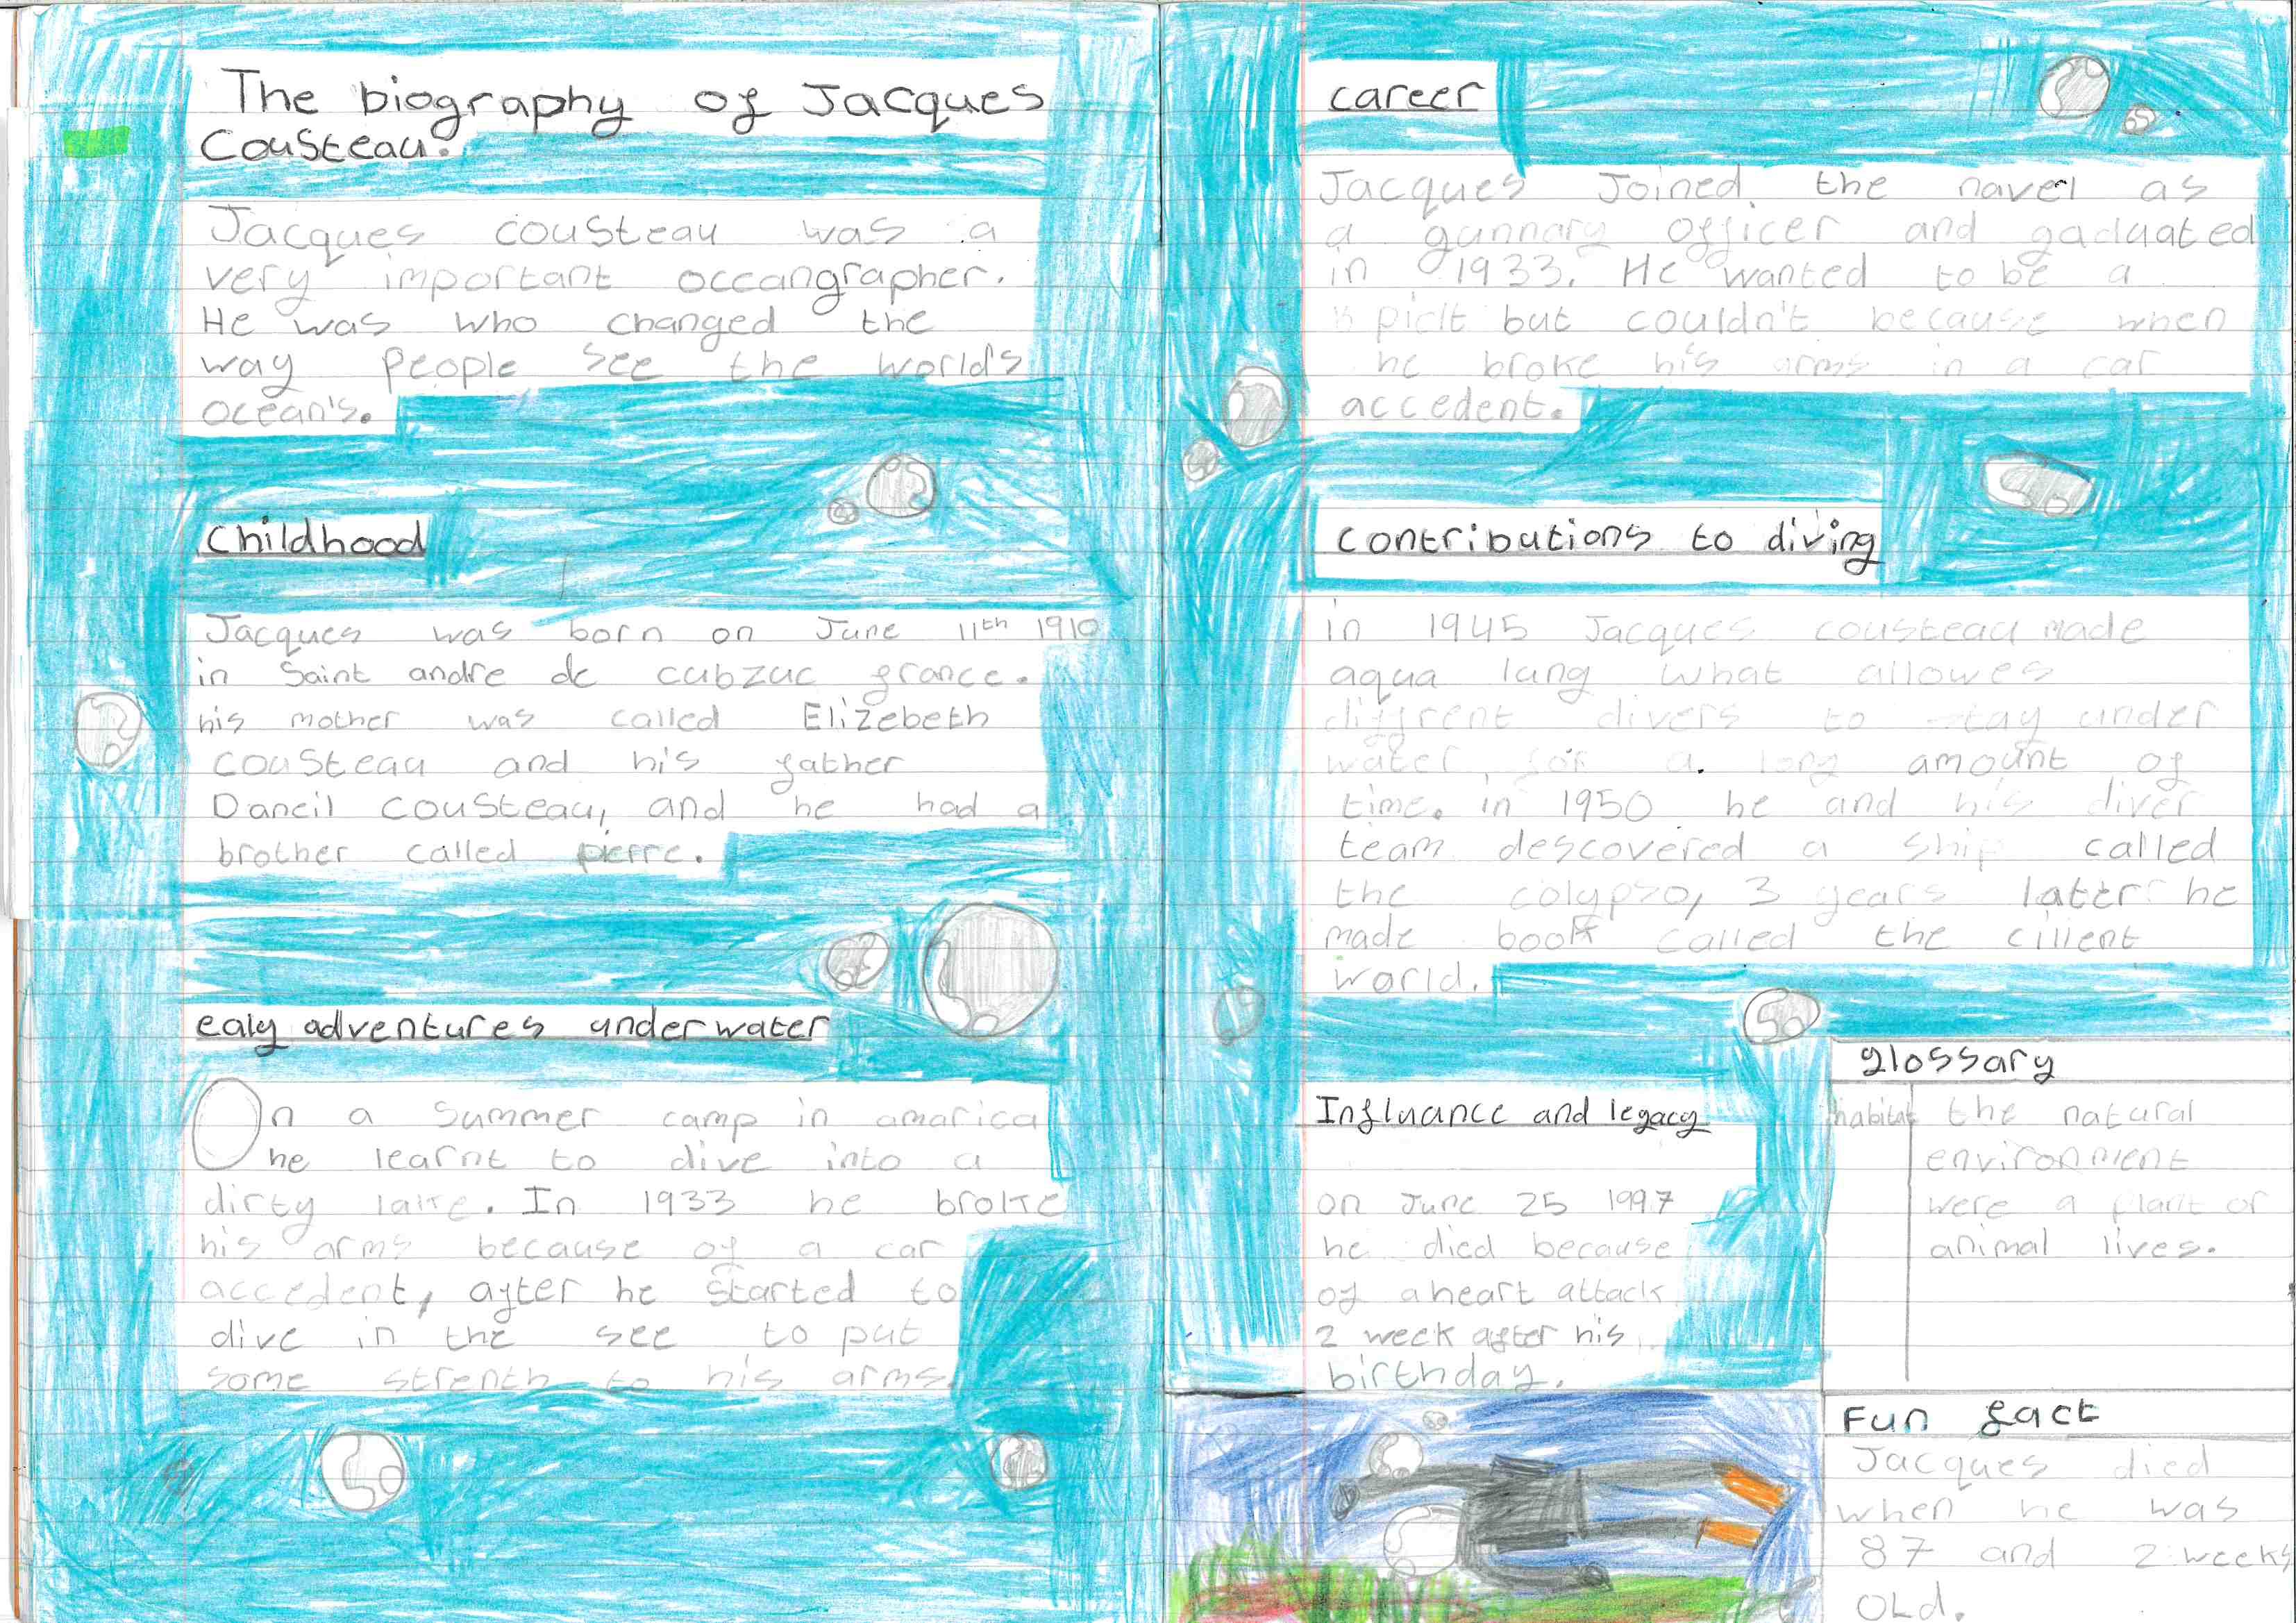 The biography of Jacques
Cousteau.
Jacques cousteau was a
very important occeangrapher.
He was who changed the
way people see the world's
ocean's.
Childhood
Jacques was born on June 11th 1910
in Saint andre de cubzac france.
his mother was called Elizebeth
cousteau and his father
Daneil cousteau, and he had a
brother called pierre.
ealy adventures underwater
On a summer camp in amarica
he learnt to dive into a
dirty lake. In 1933 he broke
his arms because of a car
accedent, after he started to
dive in the see to put
some strenth to his arms
career
Jacques Joined the navel as
a gunnary officer and gaduated
in 1933. He wanted to be a
piolt but couldn't because when
he broke his arms in a car
accedent.
contributions to diving
in 1945 Jacques cousteau made
aqua lung what allowes
diffrent divers to stay under
water, for a long amount of
time. in 1950 he and his diver
team descovered a ship called
the colypso, 3 years later he
made book called the cilient
world.
Influance and legacy
on June 25 1997
he died because
of a heart attack
2 week after his
birthday.
glossary
habitat the natural
environment
were a plant or
animal lives.
Fun fact
Jacques died
when he was
87 and 2 weeks
OLd.